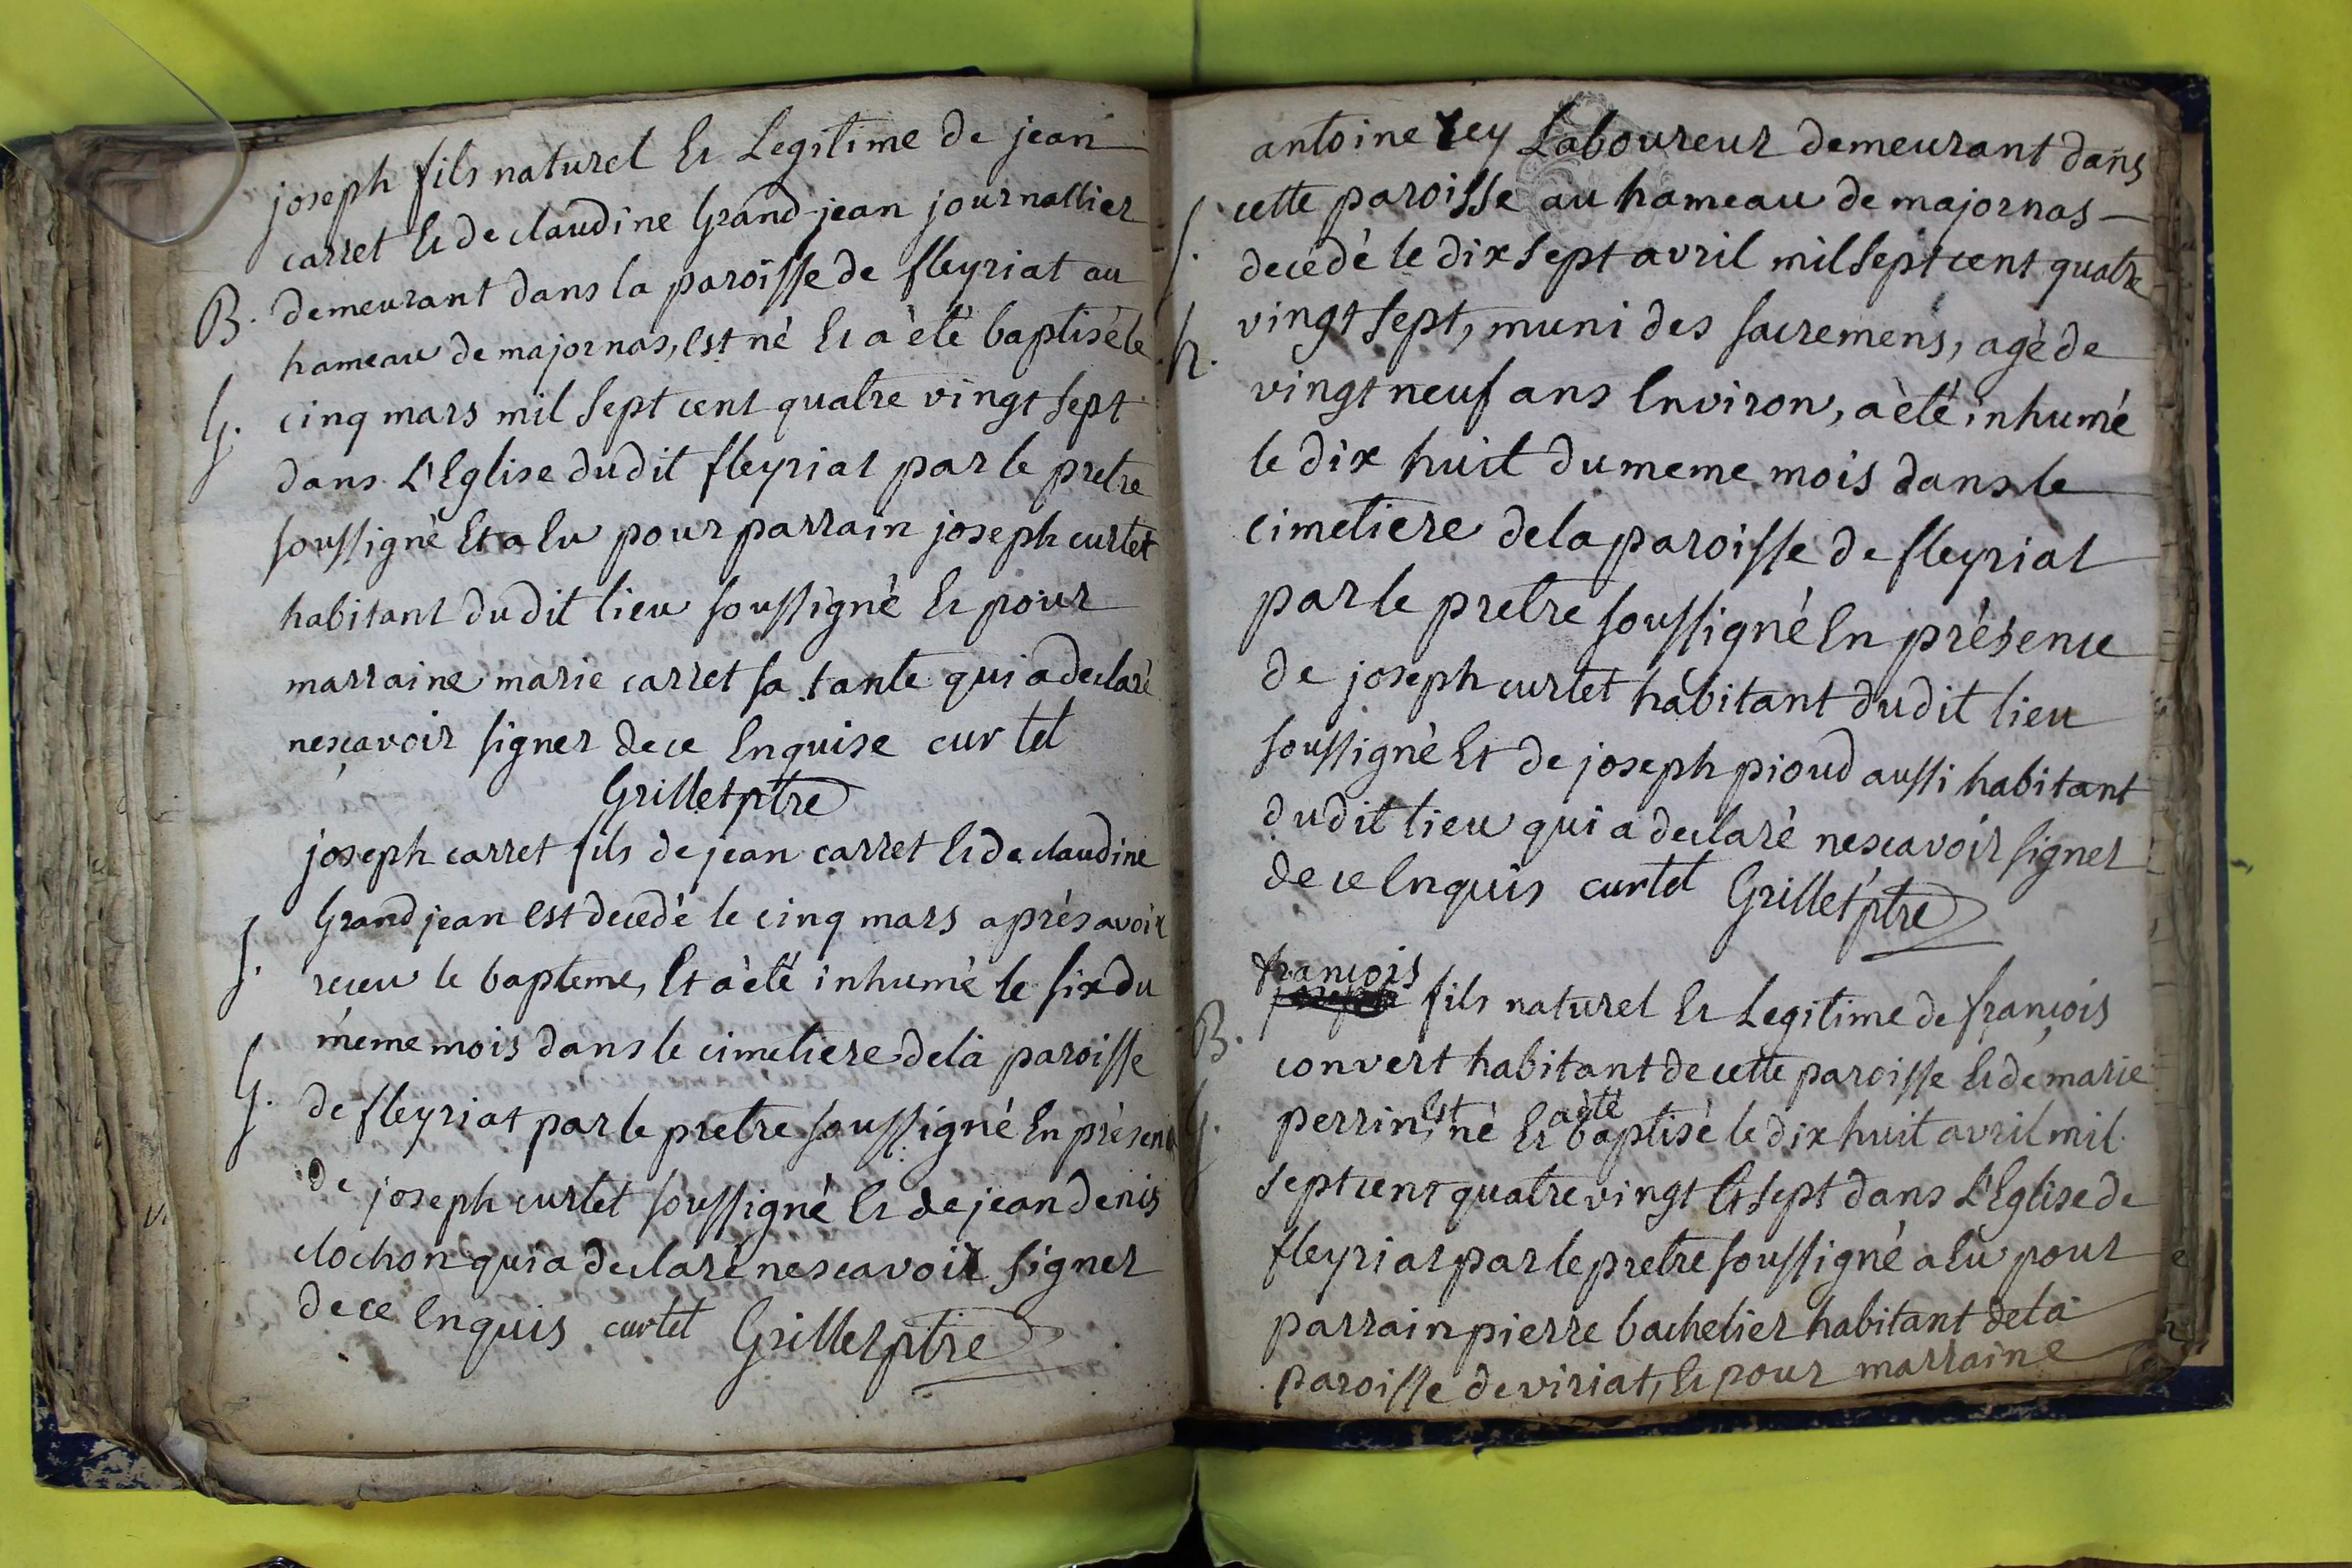 joseph fils naturel Et Legitime de jean
carret Et de claudine Grand-jean journallier
B. demeurant dans la paroisse de fleyriat au
hameau de majornas, Est né Et a èté baptisé le
G. cinq mars mil sept cent quatre vingt sept
dans L'Eglise dudit fleyriat par le pretre
soussigné Et a Eu pour parrain joseph curtet
habitant dudit lieu soussigné Et pour
marraine marie carret sa tante qui a declaré
nesçavoir signer de ce Enquise curtet
Grillet ptre
joseph carret fils de jean carret Et de claudine
Grand jean Est decedé le cinq mars aprés avoir
S. receu le bapteme, Et a èté inhumé le six du
meme mois dans le cimetiere de la paroisse
G. de fleyriat par le pretre soussigné En présence
de joseph curtet soussigné Et de jean denis
clochon qui a declaré nescavoir signer
de ce Enquis curtet Grillet ptre
antoine Rey Laboureur demeurant dans
S. cette paroisse au hameau de majornas
decedé le dix sept avril mil sept cent quatre
h. vingt sept, muni des sacremens, agé de
vingt neuf ans Environ, a èté inhumé
le dix huit du meme mois dans le
cimetiere de la paroisse de fleyriat
par le pretre soussigné En présence
de joseph curtet habitant dudit lieu
soussigné Et de joseph pioud aussi habitant
dudit lieu qui a declaré nescavoir signer
de ce Enquis curtet Grillet ptre
françois
fils naturel Et Legitime de françois
B. convert habitant de cette paroisse Et de marie
G. perrin, Est né Et a èté baptisé le dix huit avril mil
sept cent quatre vingt Et sept dans L'Eglise de
fleyriat par le pretre soussigné a Eu pour
parrain pierre bachelier habitant de la
paroisse de viriat, Et pour marraine